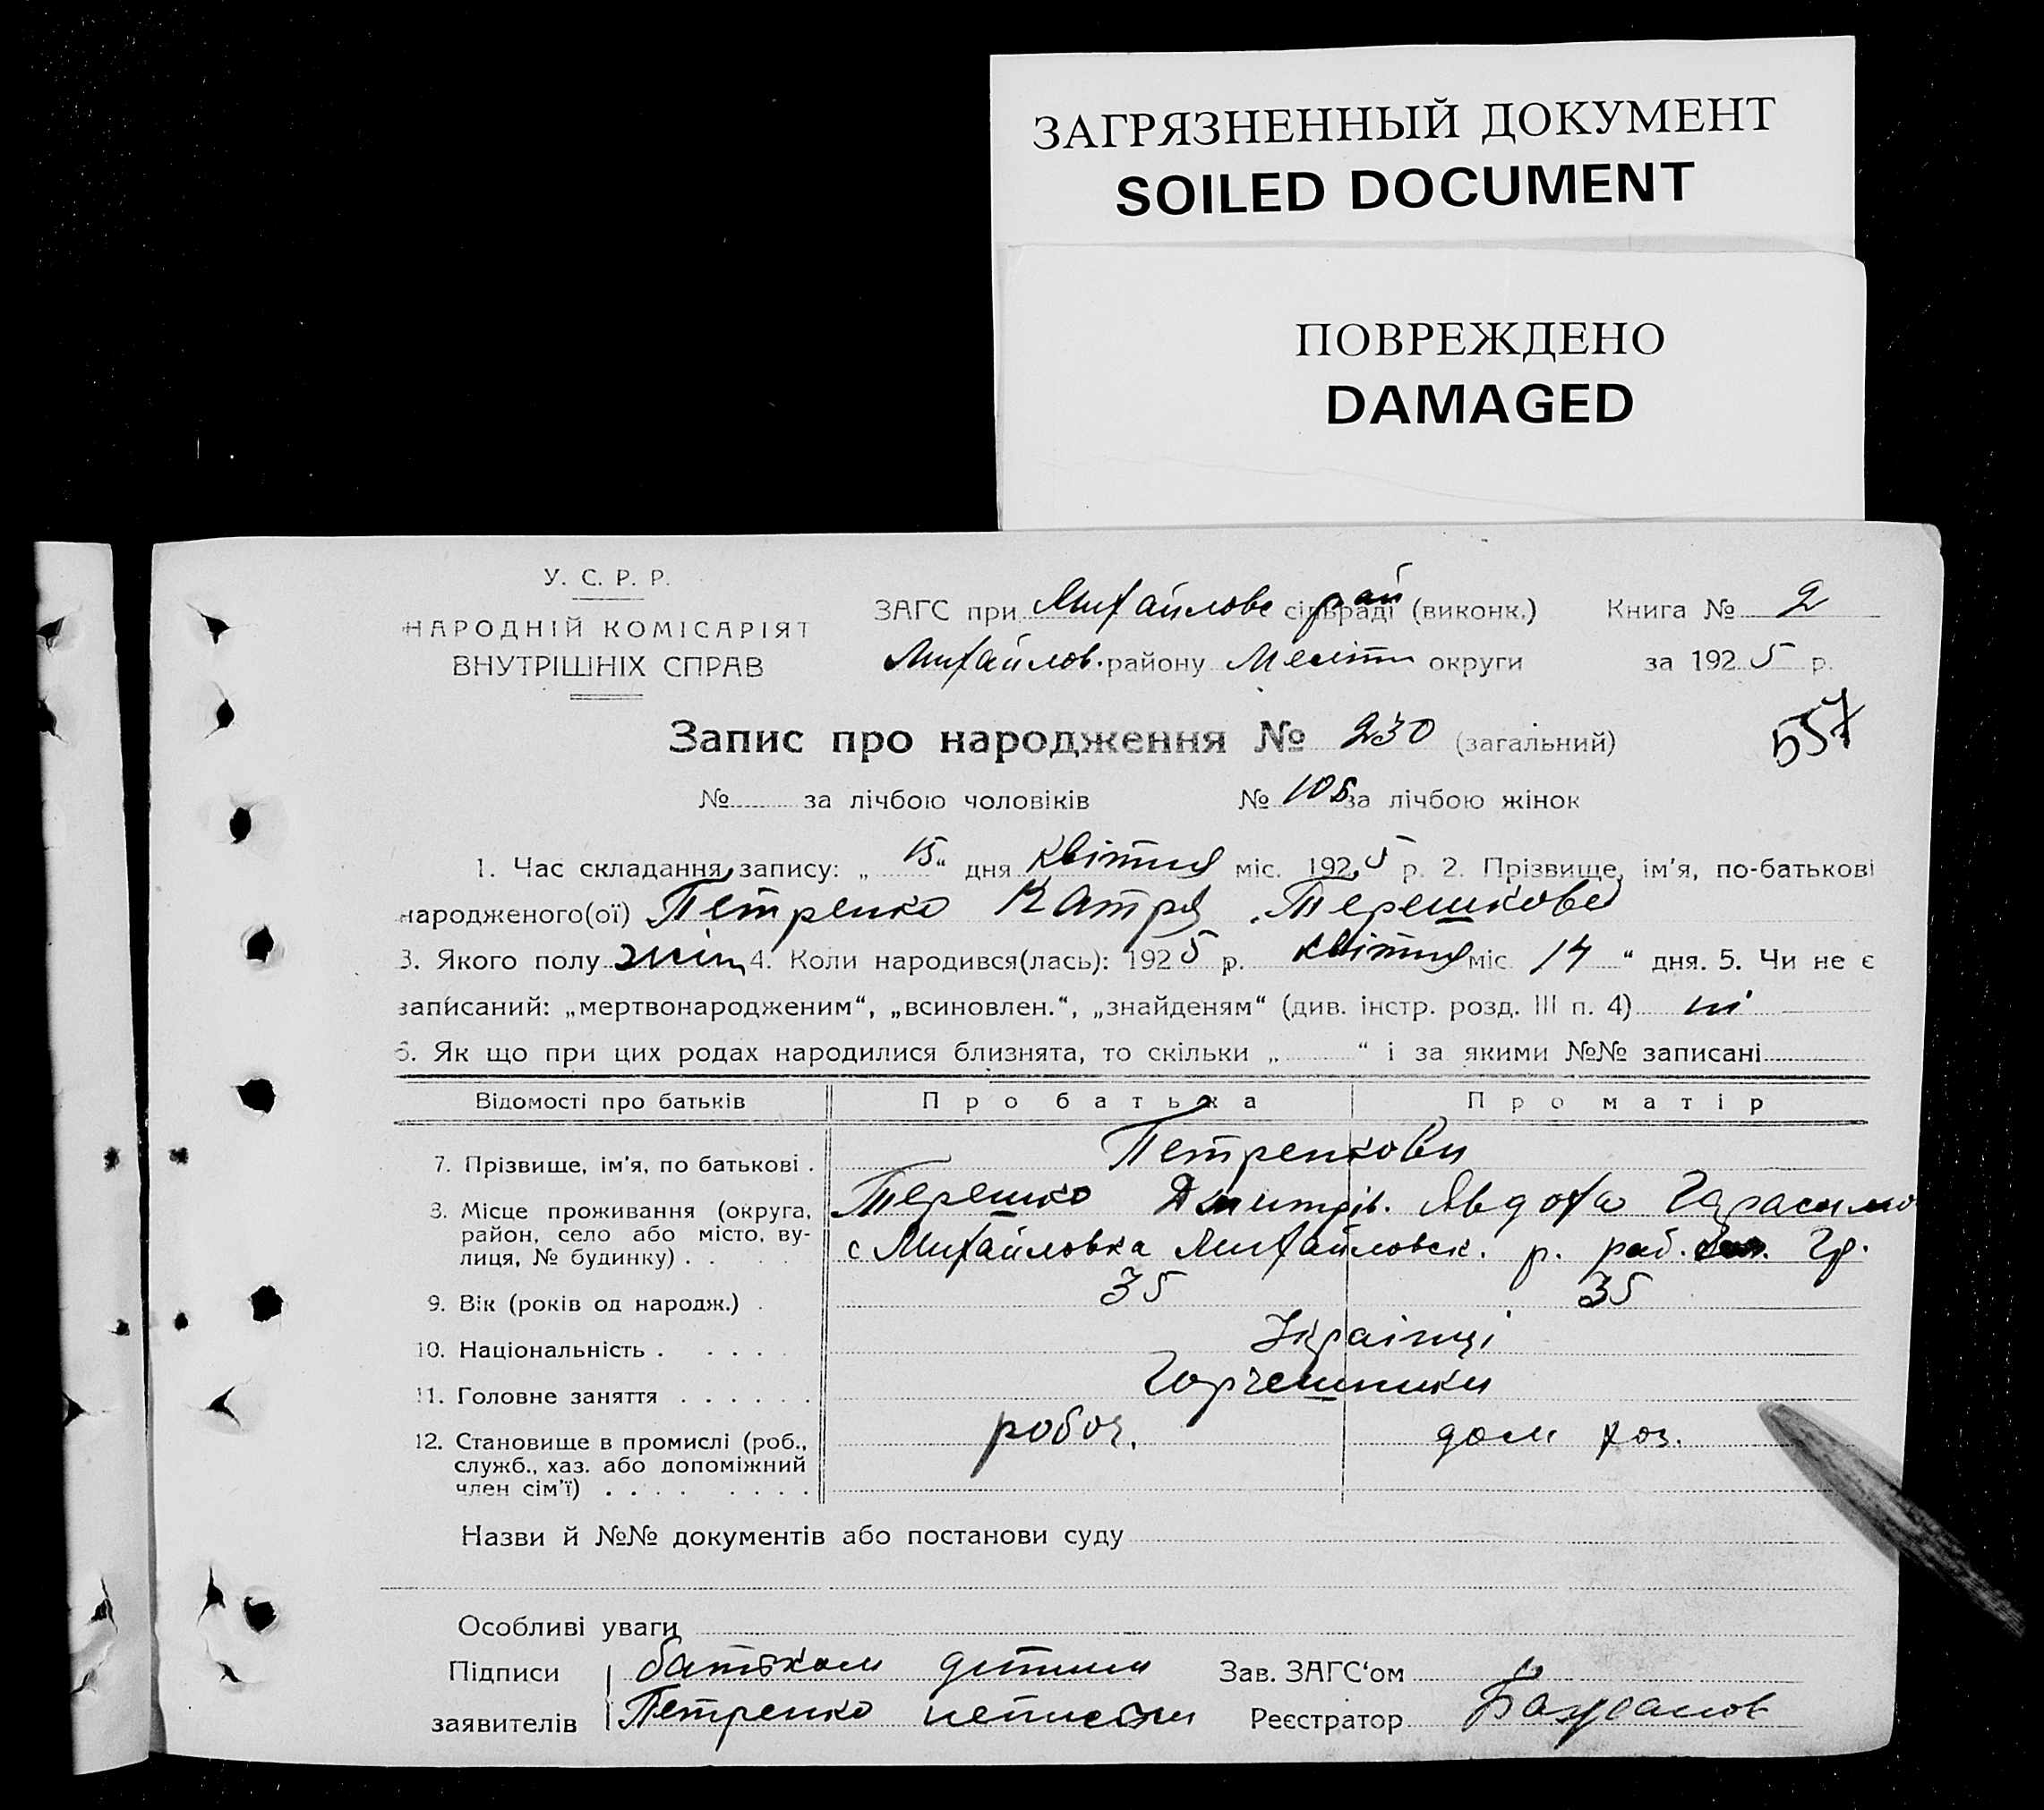 ЗАГРЯЗНЕННЫЙ ДОКУМЕНТ
SOILED DOCUMENT
ПОВРЕЖДЕНО
DAMAGED
У. С. Р. Р.
НАРОДНІЙ КОМІСАРІЯТ
ВНУТРІШНІХ СПРАВ
ЗАГС при Михайлове рай сільраді (виконк.) Книга № 2
Михайлов. району Меліт округи за 1925 р.
Запис про народження № 230 (загальний)
557
№ за лічбою чоловіків № 105 за лічбою жінок
1. Час складання запису: „ 15 “ дня квітня міс. 1925 р. 2. Прізвище, ім'я, по-батькові
народженого(ої) Петренко Катря Терешкова
3. Якого полу жін 4. Коли народився(лась): 1925 р. квітня міс 14 “ дня. 5. Чи не є
записаний: „мертвонародженим“, „всиновлен.“, „знайденям“ (див. інстр. розд. III п. 4) ні
6. Як що при цих родах народилися близнята, то скільки „ “ і за якими №№ записані
Відомості про батьків Про батька Про матір
7. Прізвище, ім'я, по батькові . Петренкови
Терешко Дмитрів. Явдоха Гарасимо
8. Місце проживання (округа, район, село або місто, вулиця, № будинку) . . с Михайловка Михайловск. р. раб.
9. Вік (років од народж.) . 35 35
10. Національність . . . . . Українці
11. Головне заняття . . . . . . Горчешники
12. Становище в промислі (роб., служб., хаз. або допоміжний член сім'ї) . . . . . . . . робоч. дом хоз.
Назви й №№ документів або постанови суду
Особливі уваги
Підписи батьком дитини Зав. ЗАГС'ом
заявителів Петренко неписьм Реєстратор